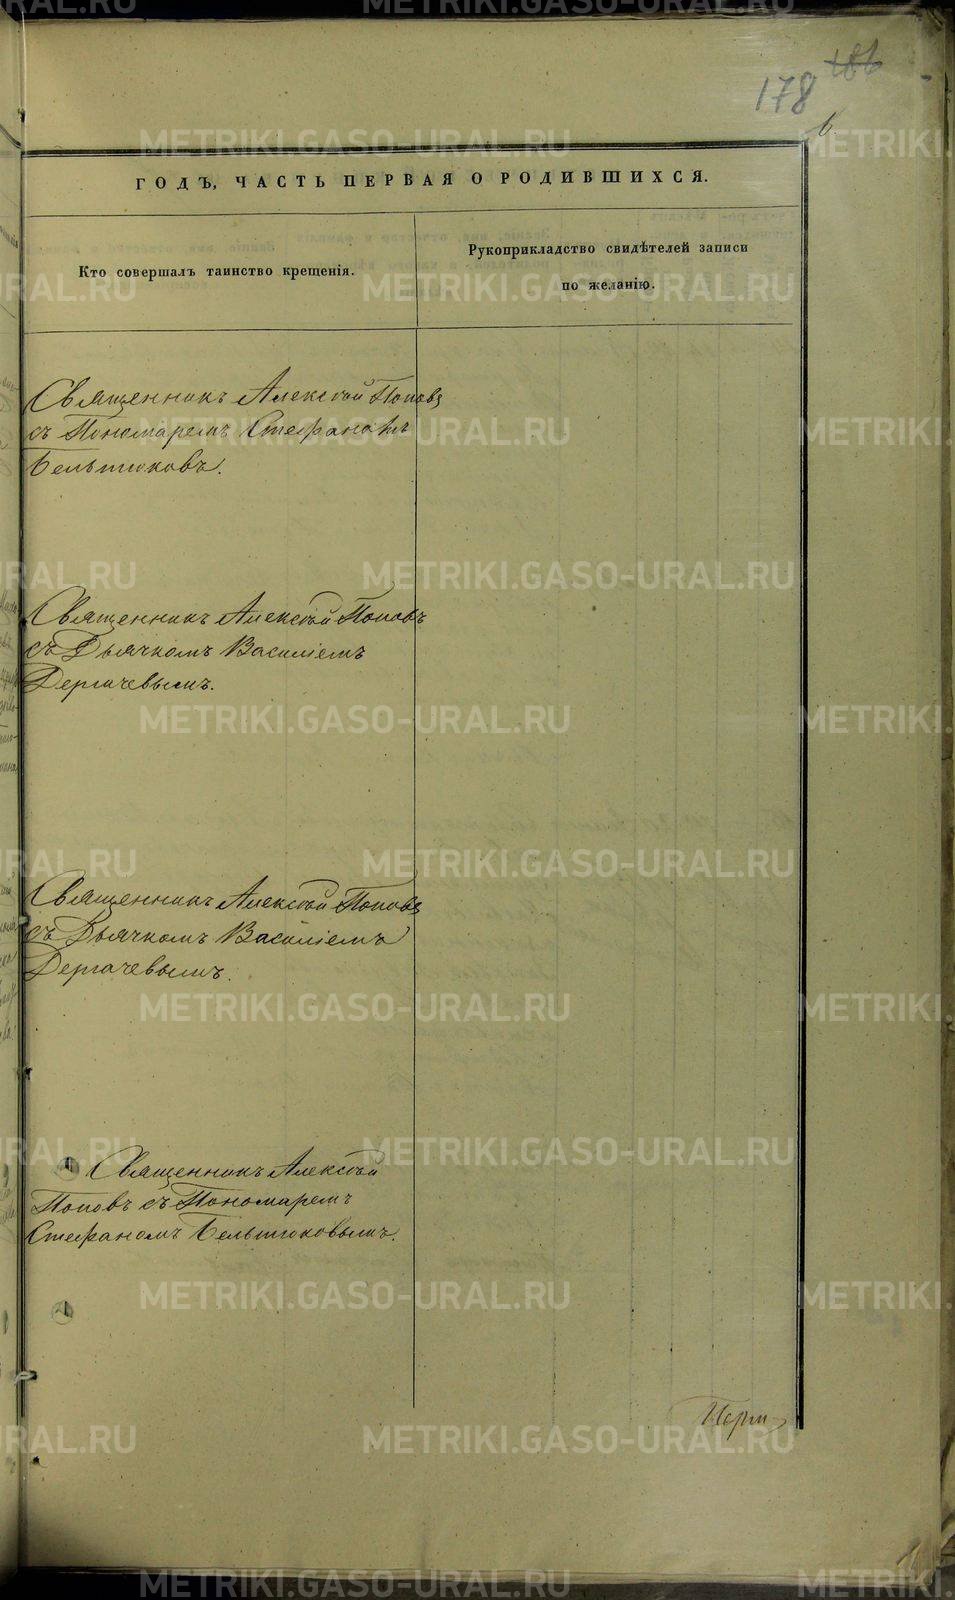 186
178
6.
ГОДЪ, ЧАСТЬ ПЕРВАЯ О РОДИВШИХСЯ.
Кто совершалъ таинство крещенія.
Рукоприкладство свидѣтелей записи
по желанію.
Священникъ Алексѣй Поповъ
съ Пономаремъ Стефаномъ
Бельтюковъ.
Священникъ Алексѣй Поповъ
съ Дьячкомъ Василіемъ
Дергачевымъ.
Священникъ Алексѣй Поповъ
съ Дьячкомъ Василіемъ
Дергачевымъ.
Священникъ Алексѣй
Поповъ съ Пономаремъ
Стефаномъ Бельтюковымъ.
METRIKI.GASO-URAL.RU